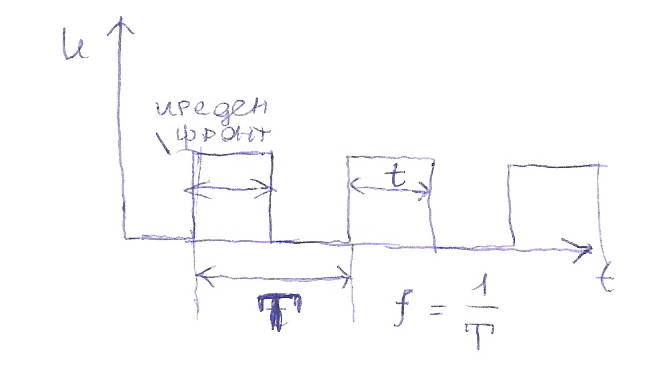 u
преден
фронт
t
t
T
f = 1/T